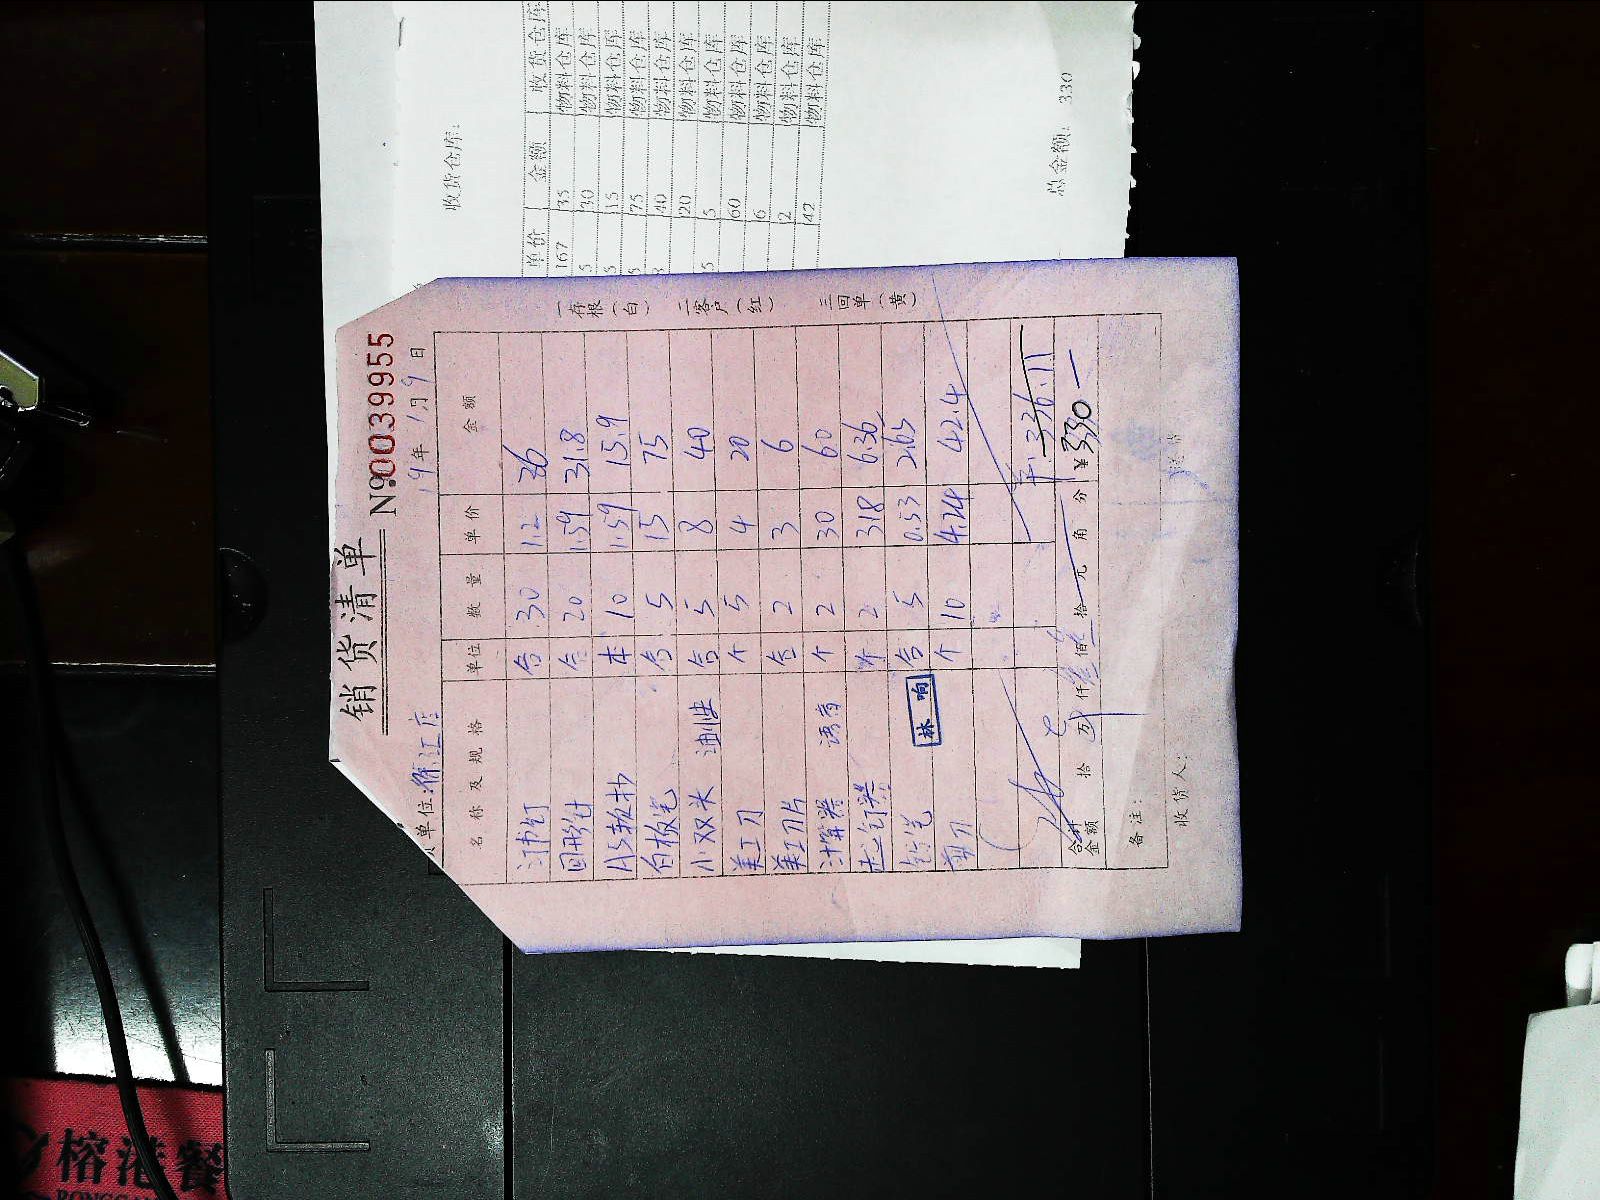 收货仓库:
单价 金额 收货仓库
167 35 物料仓库
5 30 物料仓库
5 15 物料仓库
5 75 物料仓库
8 40 物料仓库
20 物料仓库
5 5 物料仓库
60 物料仓库
6 物料仓库
2 物料仓库
42 物料仓库
总金额: 330
销货清单
№0039955
单位: 江店
19年1月9日
名称及规格 单位 数量 单价 金额
订书钉 合 30 1.2 36
回形针 合 20 1.59 31.8
A5软抄 本 10 1.59 15.9
白板笔 合 5 15 75
小双头 油性 合 5 8 40
美工刀 个 5 4 20
美工刀片 合 2 3 6
计算器 语音 个 2 30 60
起钉器 个 2 3.18 6.36
铅笔 合 5 0.53 2.65
剪刀 个 10 4.24 42.4
林响
336.11
合计金额 拾 万 仟 佰 拾 元 角 分 ¥330
备注:
收货人:
一存根(白)
二客户(红)
三回单(黄)
榕港餐